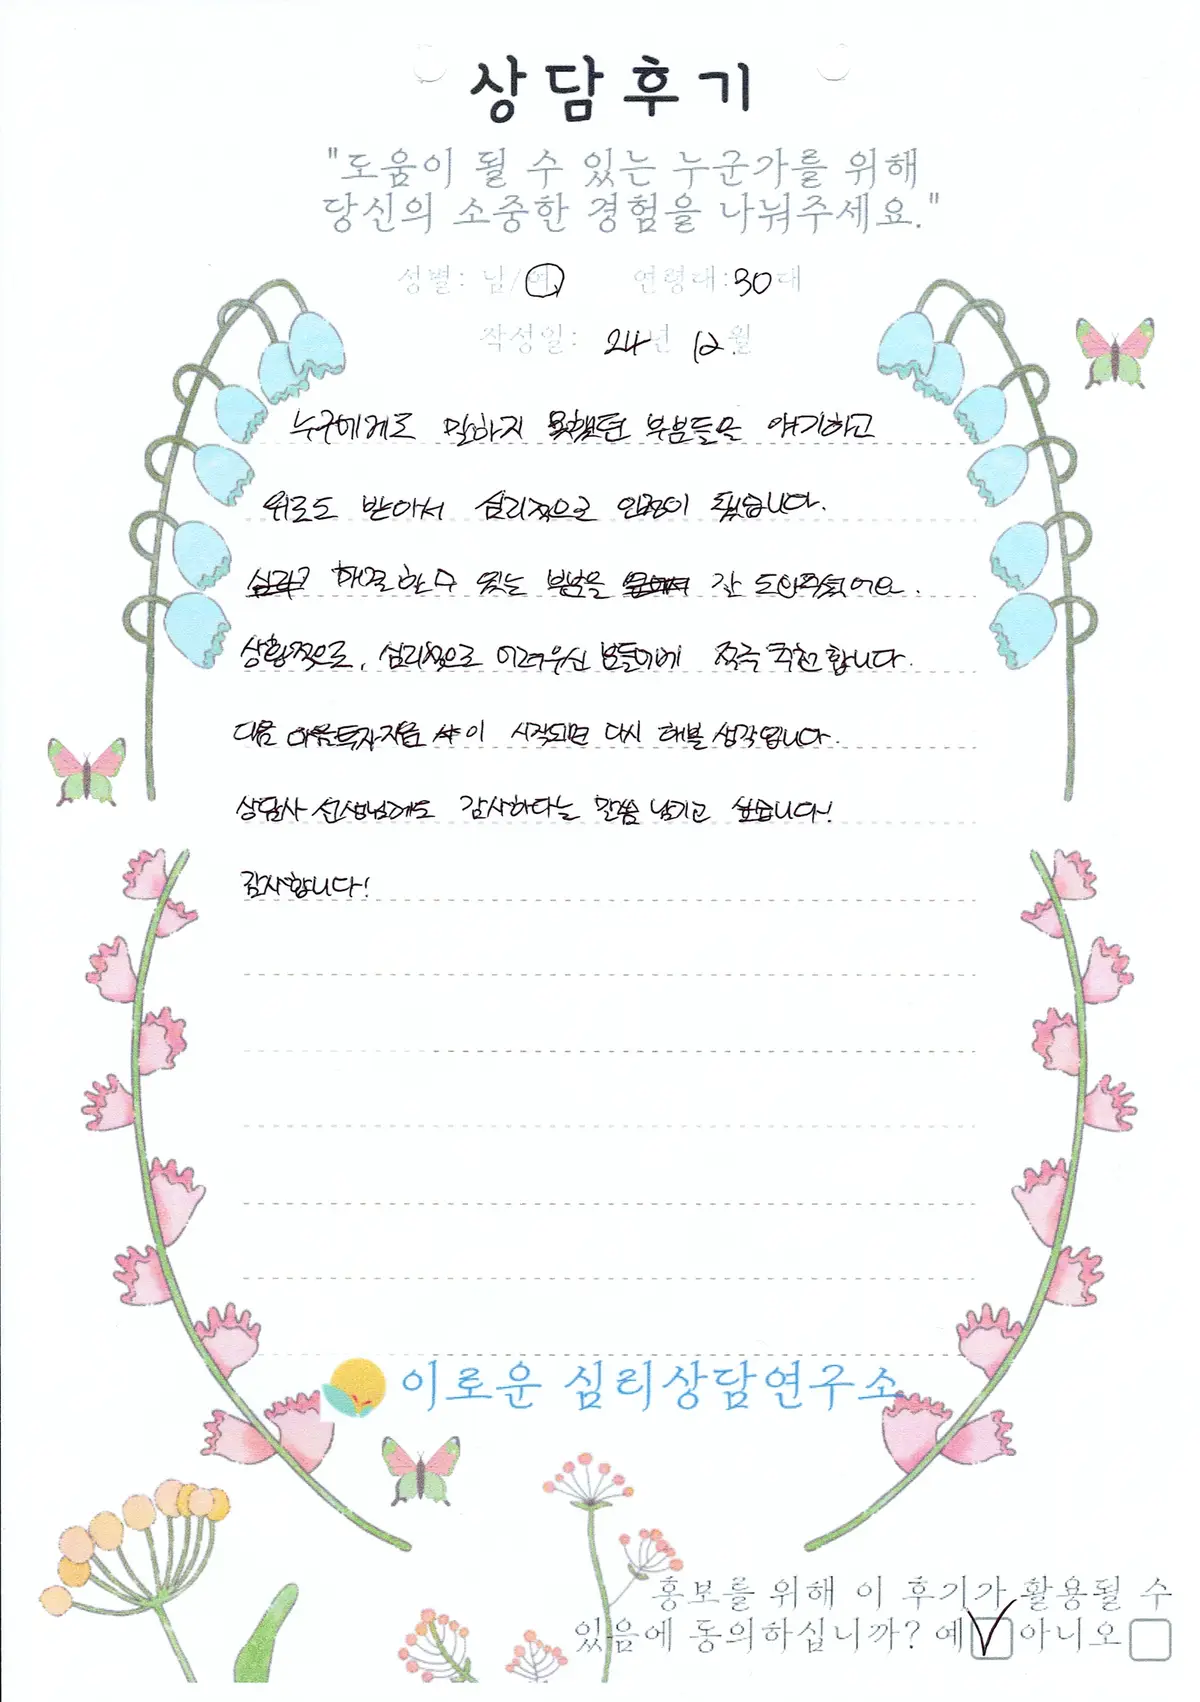 상담후기
"도움이 될 수 있는 누군가를 위해
당신의 소중한 경험을 나눠주세요."
성별: 남/여 연령대: 30대
작성일: 24년 12월
누구에게도 말하지 못했던 부분들을 얘기하고
위로도 받아서 심리적으로 안정이 됐습니다.
해결할 수 있는 부분을 잘 도와주셨어요.
상황적으로, 심리적으로 어려우신 분들에게 적극 추천합니다.
다음 마음투자지원 이 시작되면 다시 해볼 생각입니다.
상담사 선생님께도 감사하다는 말씀 남기고 싶습니다!
감사합니다!
이로운 심리상담연구소
홍보를 위해 이 후기가 활용될 수
있음에 동의하십니까? 예 아니오